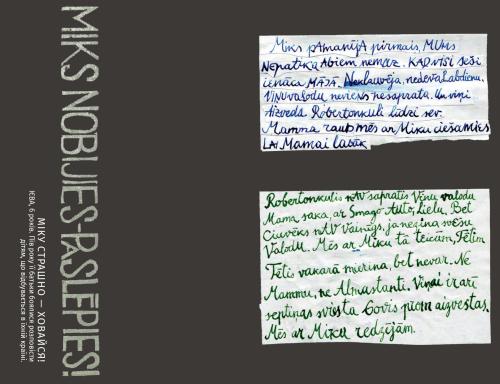 MIKS NOBIJIES-PASLĒPIES!
МІКУ СТРАШНО — ХОВАЙСЯ!
ІЄВА, 6 років. Пів року її батьки боялися розповісти
дітям, що відбувається в їхній країні.
Miks pAmanījA pirmais, MUMS
NepatikA Abiem nemAZ. KAD viSi Seši
ienāca MĀJĀ. Neklauvēja, nedeva Labdienu.
ViņU valodu neviens nesaprata. Un viņi
Aizveda Robertonkuli līdzi sev.
Mamma raud mēs ar Miku ciešamies
LAI Mamai labāk
Robertonkulis nAV sapratis Viņu valodu
Mama saka, ar Smago Auto, lielu. Bet
Cilvēks nAV Vainīgs, ja nezina svešu
Valodu. Mēs ar Miku tā teicām, Tētim
Tētis vakarā mierina, bet nevar. Ne
Mammu, ne Almastanti. Viņai ir arī
septiņas sviesta Govis prom aizvestas.
Mēs ar Miku redzējām.